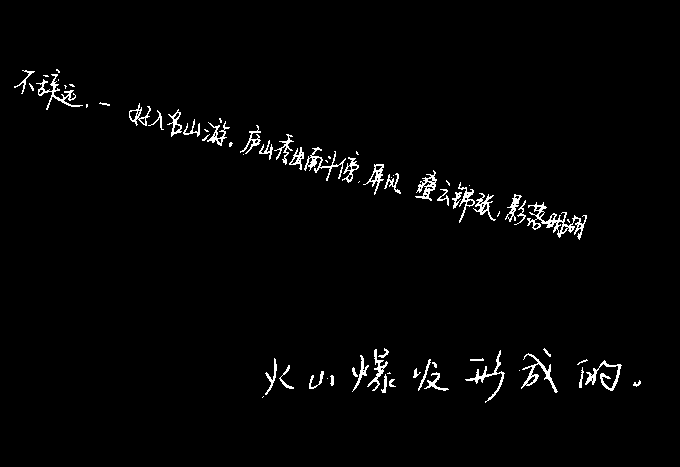 不辞远,一 好入名山游。庐山秀出南斗傍,屏风 叠云锦张,影落明湖
火山爆发形成的。